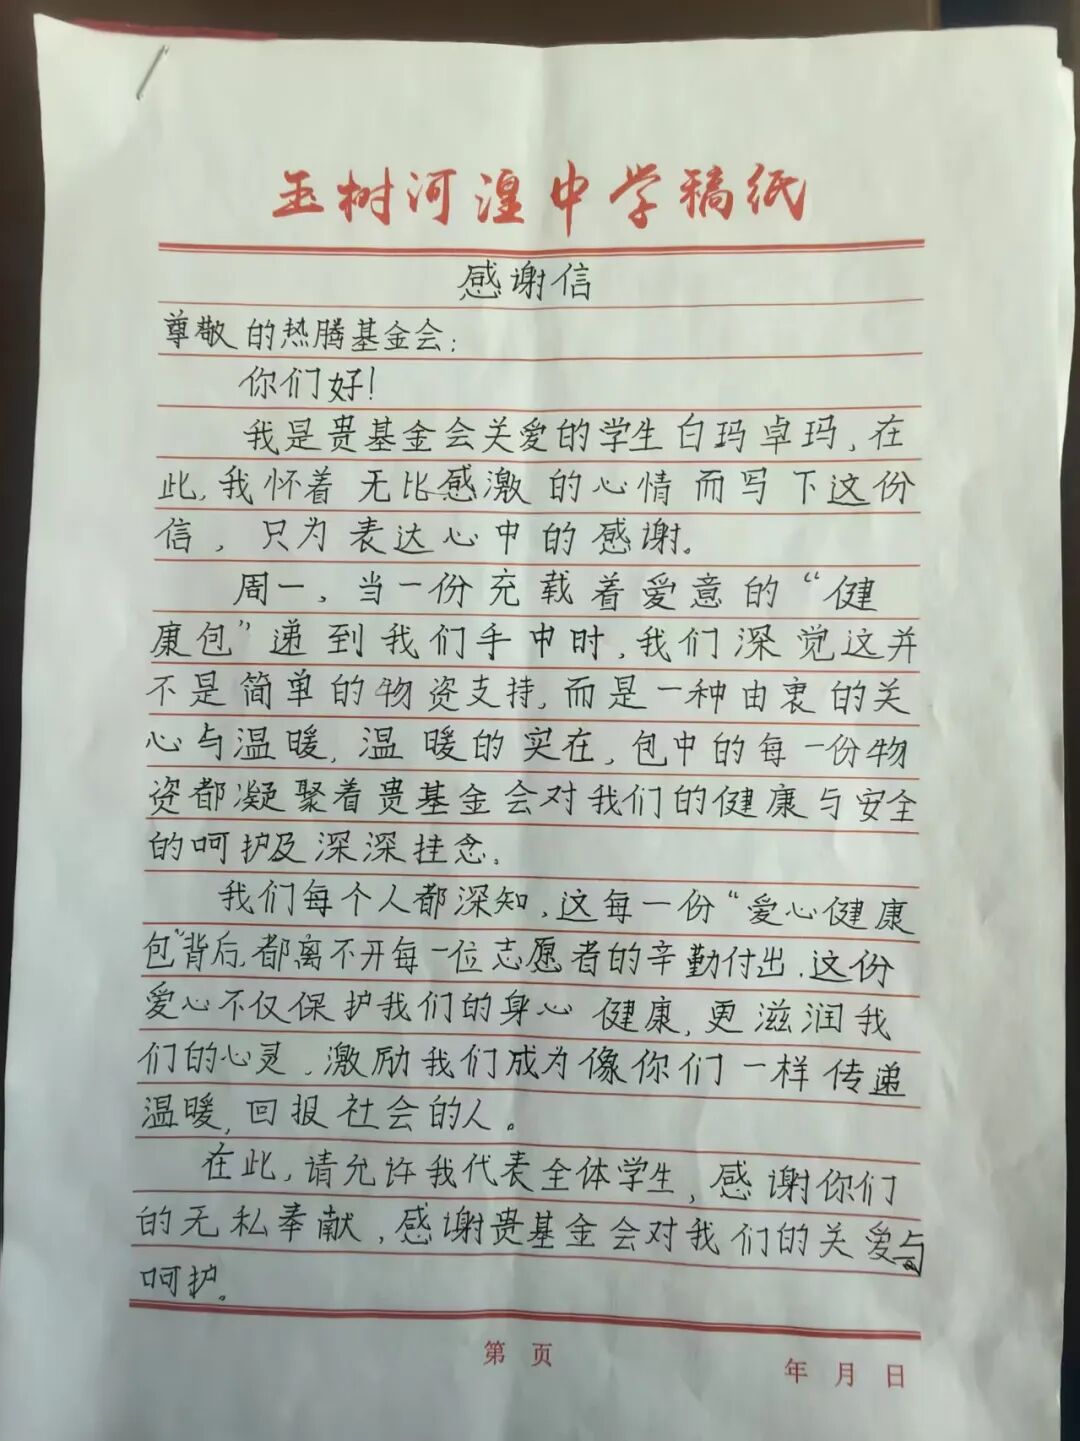 玉树河湟中学稿纸
感谢信
尊敬的热腾基金会：
你们好！
我是贵基金会关爱的学生白玛卓玛，在
此，我怀着无比感激的心情而写下这份
信，只为表达心中的感谢。
周一，当一份充载着爱意的“健
康包”递到我们手中时，我们深觉这并
不是简单的物资支持，而是一种由衷的关
心与温暖，温暖的实在，包中的每一份物
资都凝聚着贵基金会对我们的健康与安全
的呵护及深深挂念。
我们每个人都深知，这每一份“爱心健康
包”背后，都离不开每一位志愿者的辛勤付出，这份
爱心不仅保护我们的身心健康，更滋润我
们的心灵，激励我们成为像你们一样传递
温暖，回报社会的人。
在此，请允许我代表全体学生，感谢你们
的无私奉献，感谢贵基金会对我们的关爱与
呵护。
第 页
年 月 日